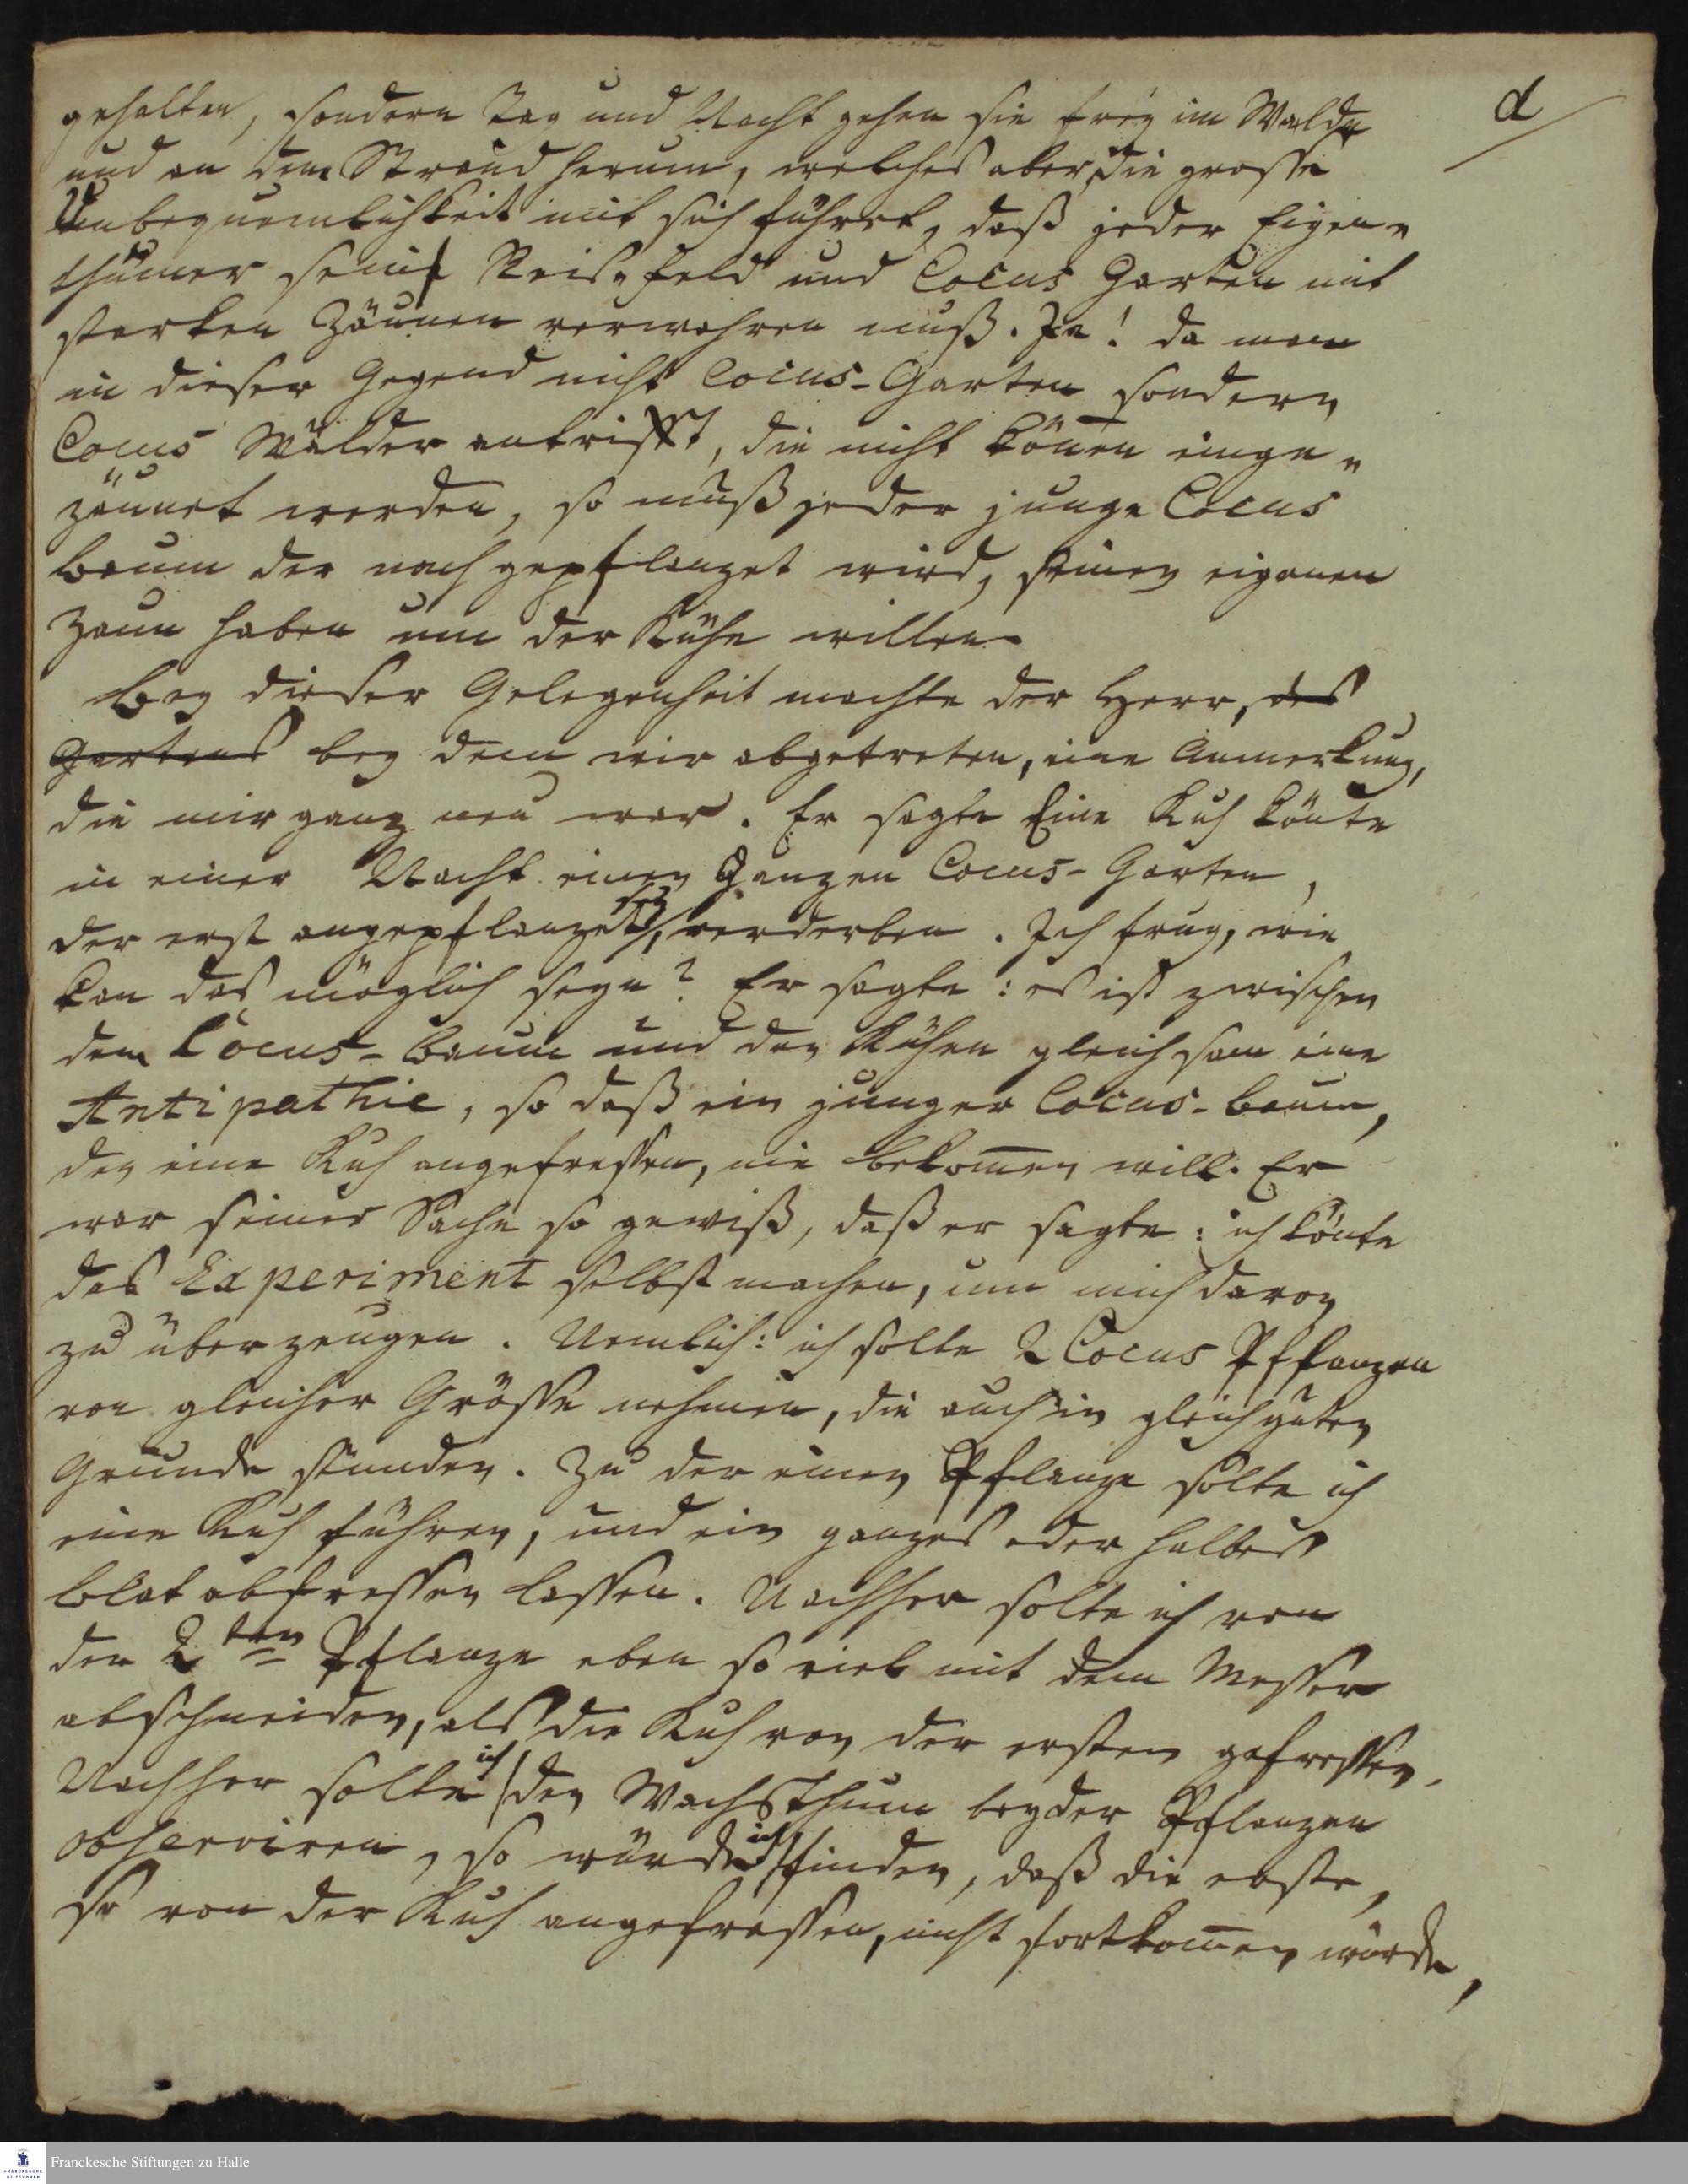 d
gehalten, sondern Tag und Nacht gehen sie frey im Walde
und an dem Strand herum, welches aber die grosse
Unbequemlichkeit mit sich führet, daß jeder Eigen-
thümer sein Reis-feld und Cocus Garten mit
starken Zäunen verwahren muß. Ja! da man
in dieser Gegend nicht Cocus-Garten sondern
Cocus Wälder antrifft, die nicht können einge-
zäunet werden, so muß jeder junge Cocus
baum der nach gepflanzet wird, seinen eigenen
Zaun haben um der Kühe willen.
Bey dieser Gelegenheit machte der Herr, des
Gartens bey dem wir abgetreten, eine Anmerkung,
die mir ganz neu war. Er sagte Eine Kuh könte
in einer Nacht einen Ganzen Cocus-Garten,
der erst angepflanzet sey, verderben. Ich frug, wie
kan das möglich seyn? Er sagte: es ist zwischen
dem Cocus-baum und den Kühen gleichsam eine
Antipathie, so daß ein junger Cocus-baum,
den eine Kuh angefressen, nie bekom̄en will. Er
war seiner Sache so gewiß, daß er sagte: ich könte
das Experiment selbst machen, um mich davon
zu überzeugen. Nemlich: ich solte 2 Cocus Pflanzen
von gleicher Grösse nehmen, die auch in gleich guten
Grunde stünden. Zu der einen Pflanze solte ich
eine Kuh führen, und ein ganzes oder halbes
blat abfressen lassen. Nachher solte ich von
der 2ten Pflanze eben so viel mit dem Messer
abschneiden, als die Kuh von der ersten gefressen.
Nachher solte ich den Wachsthum beyder Pflanzen
observiren, so würde ich finden, daß die erste,
so von der Kuh angefressen, nicht fortkom̄en würde,
Franckesche Stiftungen zu Halle